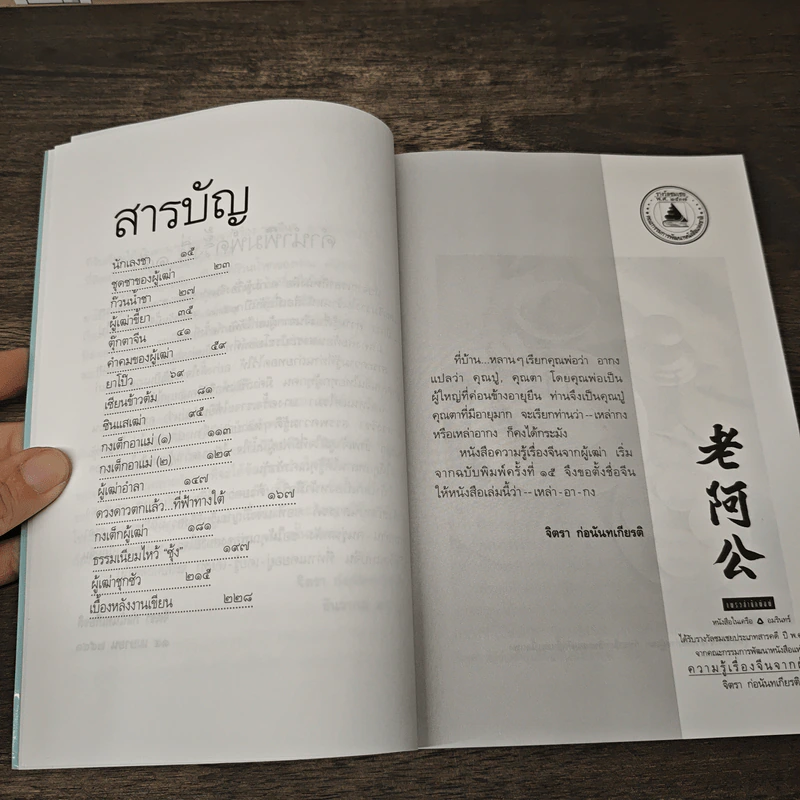 สารบัญ
นักเลงชา ๑๕
ชุดชาของผู้เฒ่า ๒๓
ก๊วนน้ำชา ๒๗
ผู้เฒ่าขี้ยา ๓๕
ตุ๊กตาจีน ๔๑
คำคมของผู้เฒ่า ๕๙
ยาโป๊ว ๖๙
เซียนข้าวต้ม ๘๑
ซินแสเฒ่า ๙๕
กงเต็กอาแม่ (๑) ๑๑๓
กงเต็กอาแม่ (๒) ๑๒๙
ผู้เฒ่าอำลา ๑๔๗
ดวงดาวตกแล้ว...ที่ฟ้าทางใต้ ๑๖๗
กงเต็กผู้เฒ่า ๑๘๑
ธรรมเนียมไหว้ "ซุ้ง" ๑๙๗
ผู้เฒ่าชุกชัว ๒๑๕
เบื้องหลังงานเขียน ๒๒๘
รางวัลชมเชย
ที่บ้าน...หลานๆเรียกคุณพ่อว่า อากง
แปลว่า คุณปู่, คุณตา โดยคุณพ่อเป็น
ผู้ใหญ่ที่ค่อนข้างอายุยืน ท่านจึงเป็นคุณปู่
คุณตาที่มีอายุมาก จะเรียกท่านว่า--เหล่ากง
หรือเหล่าอากง ก็คงได้กระมัง
หนังสือความรู้เรื่องจีนจากผู้เฒ่า เริ่ม
จากฉบับพิมพ์ครั้งที่ ๑๕ จึงขอตั้งชื่อจีน
ให้หนังสือเล่มนี้ว่า--เหล่า-อา-กง
จิตรา ก่อนันทเกียรติ
老阿公
แพรวสำนักพิมพ์
หนังสือในเครือ อมรินทร์
ได้รับรางวัลชมเชยประเภทสารคดี ปี พ.ศ
จากคณะกรรมการพัฒนาหนังสือแห
ความรู้เรื่องจีนจากผ
จิตรา ก่อนันทเกียรติ